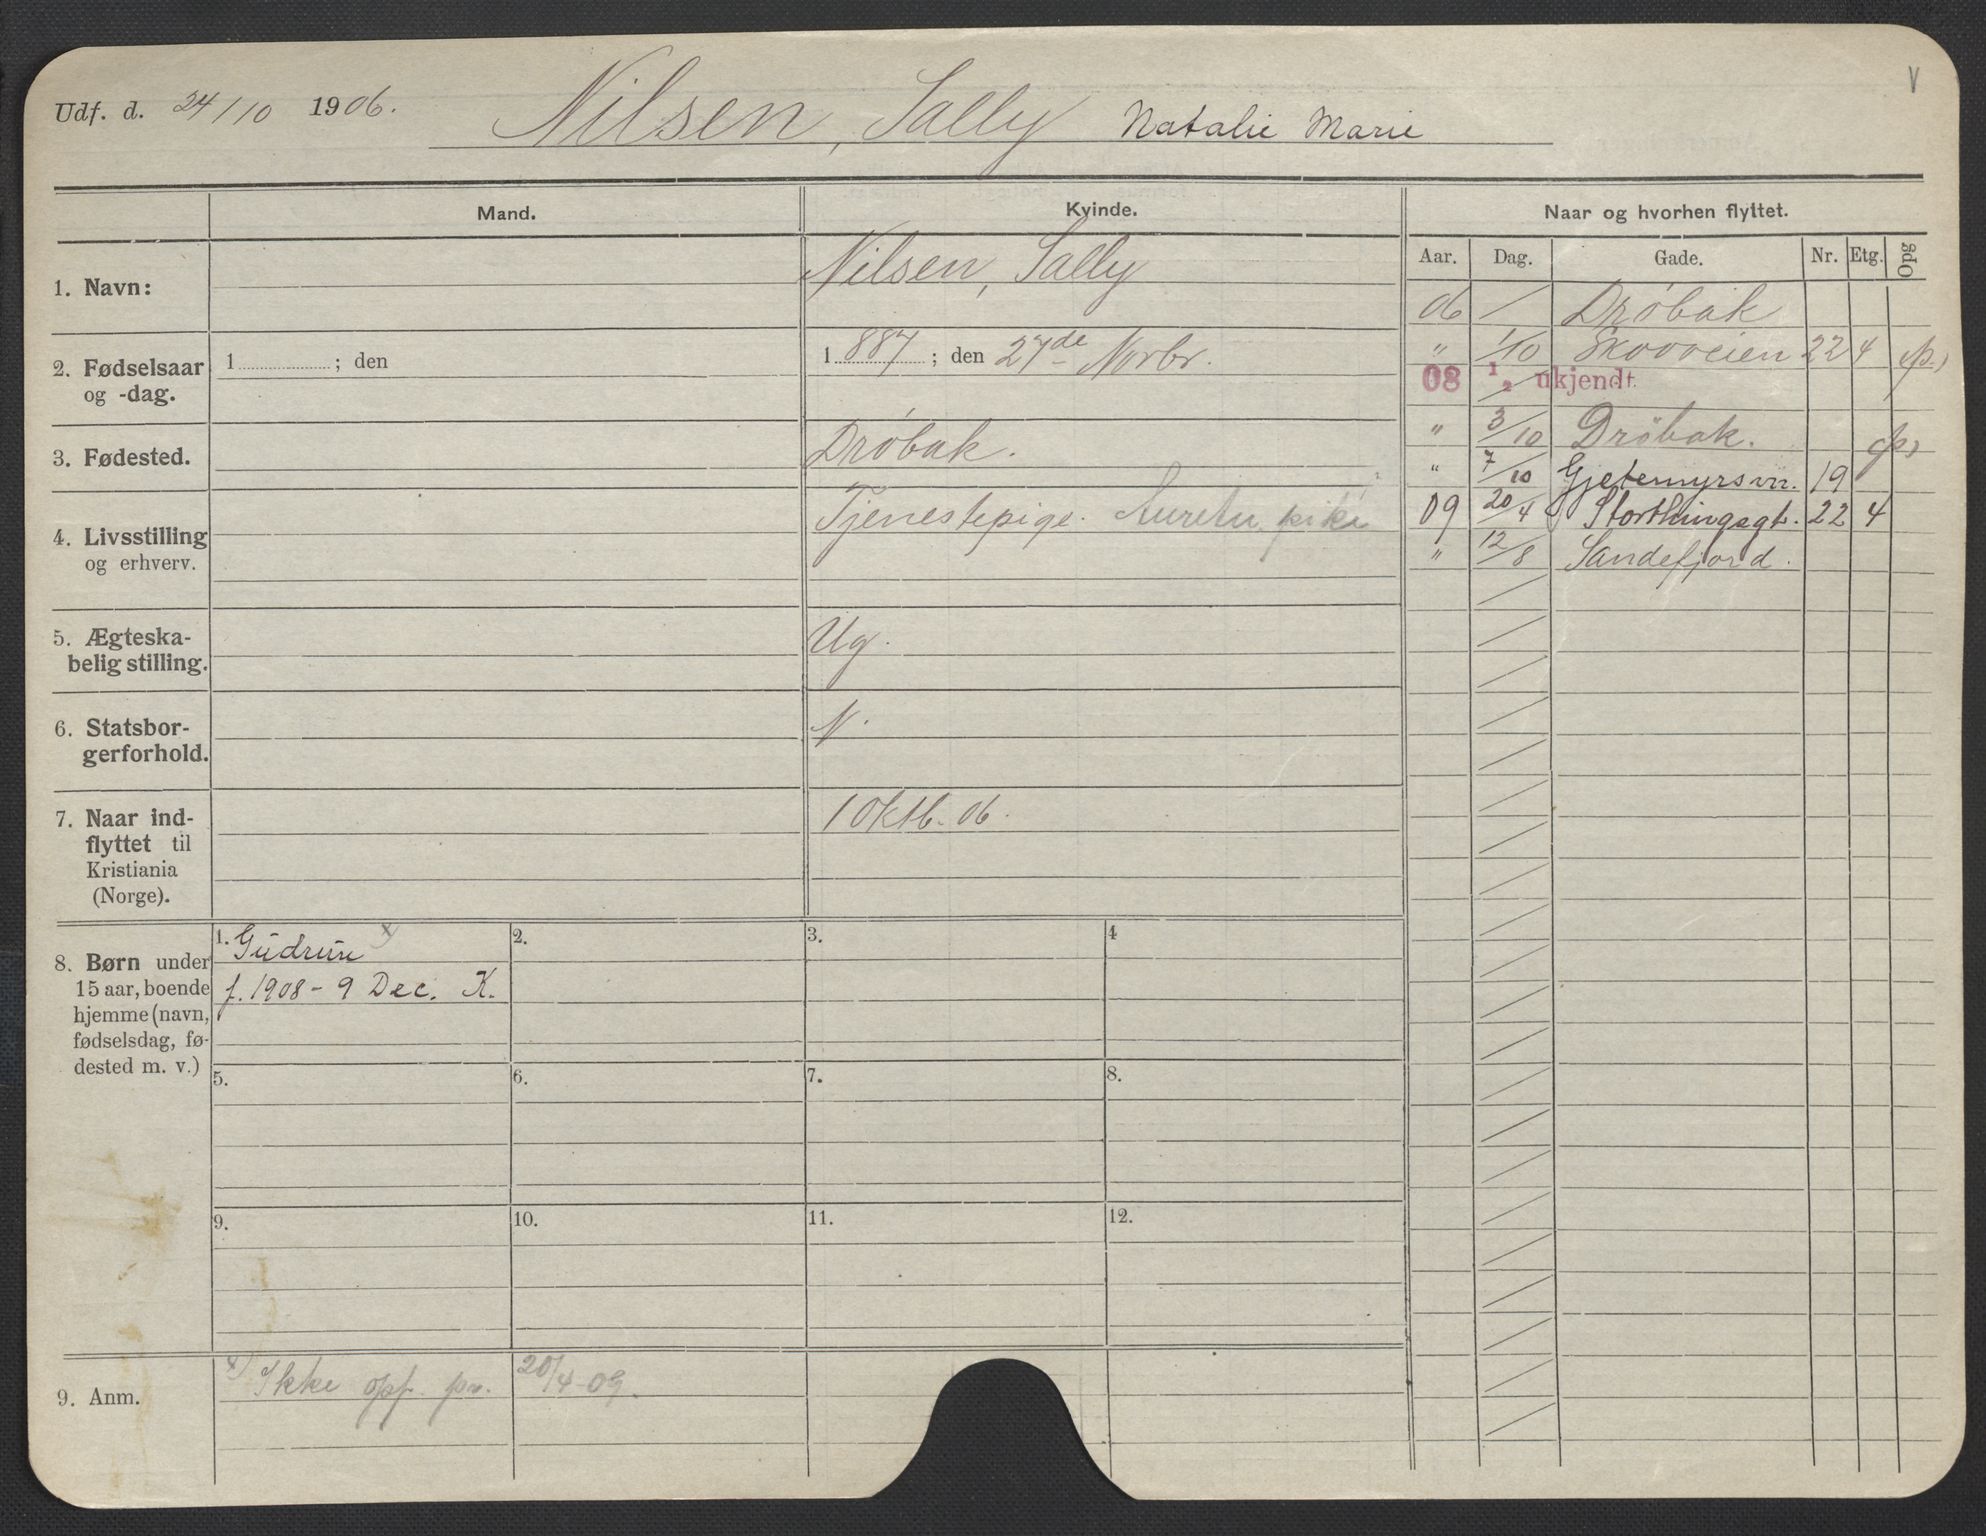 Udf. d. 24/10 1906. Nilsen, Sally Natalie Marie
V
Mand.
Kvinde.
Naar og hvorhen flyttet.
Aar. Dag. Gade. Nr. Etg. Opg
1. Navn:
Nilsen, Sally
2. Fødselsaar
og -dag.
1 ; den
1 887 ; den 27de Novbr.
3. Fødested.
Drøbak.
4. Livsstilling
og erhverv.
Tjenestepige. pike
5. Ægteska-
belig stilling.
Ug.
6. Statsbor-
gerforhold.
N.
7. Naar ind-
flyttet til
Kristiania
(Norge).
1 oktb. 06.
06 / Drøbak
" 1/10 Skovveien 22 4 (p.)
08 1/2 ukjendt.
" 3/10 Drøbak.
" 7/10 Gjetemyrsvn. 19
09 20/4 Storthingsgt. 22 4
" 12/8 Sandefjord.
8. Børn under
15 aar, boende
hjemme (navn,
fødselsdag, fø-
dested m. v.)
1. Gudrun x)
f. 1908 - 9 Dec. K.
2.
3.
4
5.
6.
7.
8.
9.
10.
11.
12.
9. Anm.
x) Ikke opf. pr. 20/4-09.